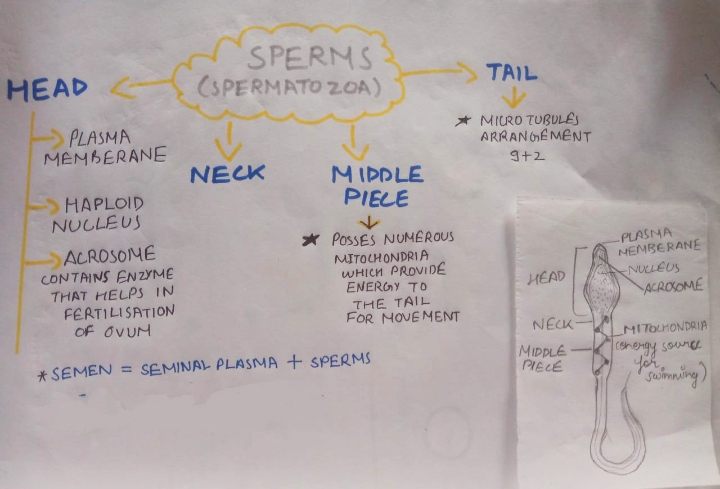 SPERMS
(SPERMATOZOA)
HEAD
PLASMA
MEMBERANE
HAPLOID
NUCLEUS
ACROSOME
CONTAINS ENZYME
THAT HELPS IN
FERTILISATION
OF OVUM
NECK
MIDDLE
PIECE
* POSSES NUMEROUS
MITOCHONDRIA
WHICH PROVIDE
ENERGY TO
THE TAIL
FOR MOVEMENT
TAIL
* MICRO TUBULES
ARRANGEMENT
9+2
* SEMEN = SEMINAL PLASMA + SPERMS
PLASMA
MEMBERANE
NUCLEUS
ACROSOME
HEAD
NECK
MIDDLE
PIECE
MITOCHONDRIA
(energy source
for
swimming)